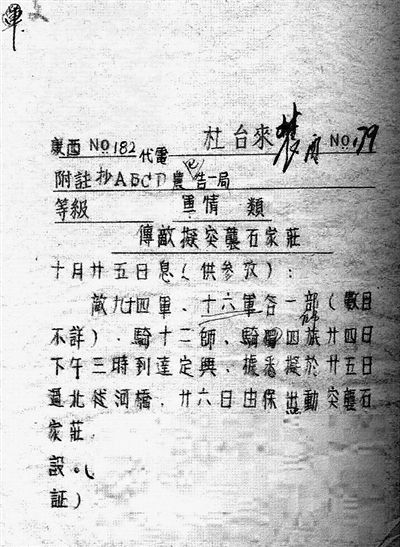 軍
廣西 NO 182 代電 杜台來 NO. 179
附註抄ABCD 農 告一局
等級 軍情類
傳敵擬突襲石家莊
十月廿五日息(供參攷):
敵九十四軍、十六軍各一部(數目
不詳)、騎十二師、騎四旅廿四日
下午三時到達定興、據悉擬於廿五日
逼北徐河橋、廿六日由保出動突襲石
家莊.
設
証)